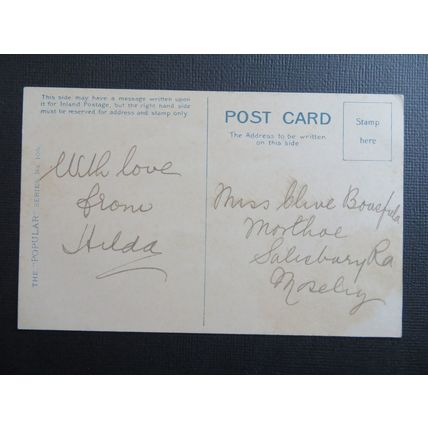 This side may have a message written upon
it for Inland Postage, but the right hand side
must be reserved for address and stamp only
POST CARD
The Address to be written
on this side
Stamp
here
THE "POPULAR" SERIES No.
With love
from
Hilda
Miss Olive
Morthoe
Salisbury Rd
Moseley